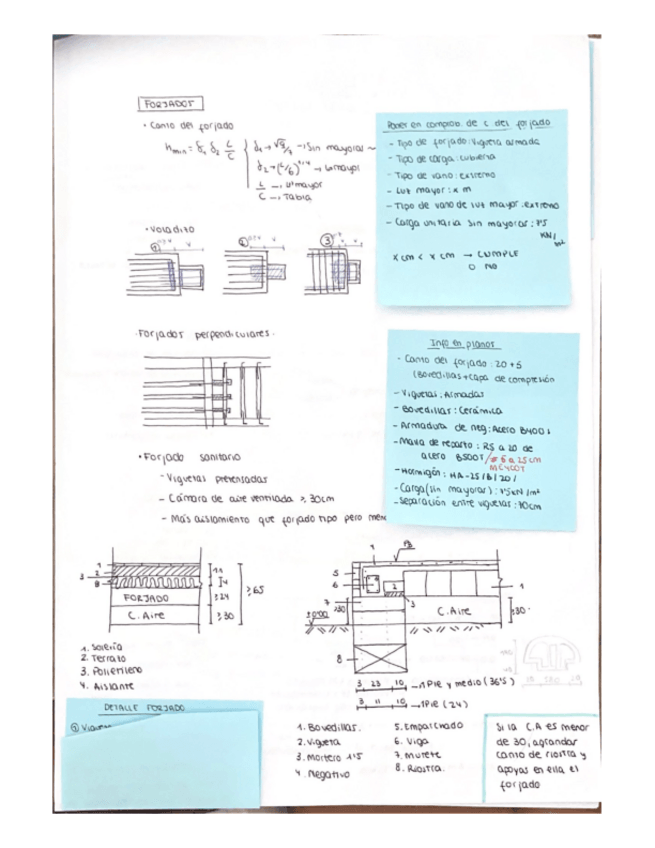 FORJADOS
• Canto del forjado
hmin = δ₁ δ₂ L/C
δ₁ → √q/7 → Sin mayorar
δ₂ → (L/6)^1/4 → L mayor
L → L mayor
C → Tabla
• Voladizo
① ② ③
· Forjados perpendiculares ·
• Forjado sanitario
- Viguetas pretensadas
- Cámara de aire ventilada ≥ 30cm
- Más aislamiento que forjado tipo pero
Poner en comprob. de c del forjado
- Tipo de forjado: Vigueta armada
- Tipo de carga: cubierta
- Tipo de vano: extremo
- Luz mayor: x m
- Tipo de vano de luz mayor: extremo
- Carga unitaria sin mayorar: 7'5
KN/m²
x cm < x cm → CUMPLE
O NO
Info en planos
· Canto del forjado: 20+5
(Bovedillas+capa de compresión
- Viguetas: Armadas
- Bovedillas: Cerámica
- Armadura de neg: Acero B400S
- Malla de reparto: R5 a 20 de
acero B500T / # 6 a 25 cm
ME400T
- Hormigón: HA-25/B/20/
- Carga (sin mayorar): 7'5 KN/m²
- Separación entre viguetas: 70cm
3
1
2
8
FORJADO
C. Aire
11
4
≥24
≥30
≥65
1. Solería
2. Terrazo
3. Polietileno
4. Aislante
1
PB
5
6
4
2
7
3
1
≥30
±0'00
C. Aire
≥30
8
3 23 10 → 1 PIE y medio (36'5)
3 11 10 → 1 PIE (24)
1. Bovedillas.
2. Vigueta
3. Mortero 1'5
4. Negativo
5. Emparchado
6. Viga
7. Murete
8. Riostra.
DETALLE FORJADO
① Vigueta
Si la C.A es menor
de 30, agrandar
canto de riostra y
apoyas en ella el
forjado